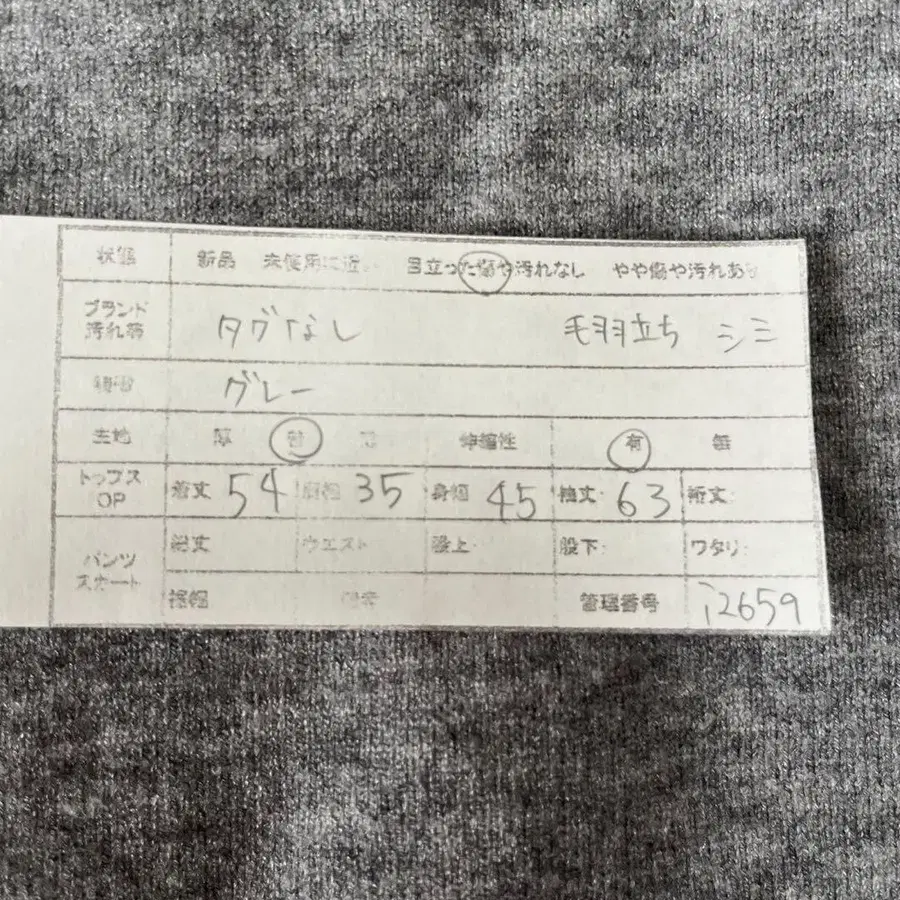 状態 新品 未使用に近い 目立った傷や汚れなし やや傷や汚れあり
ブランド 汚れ等 タグなし 毛羽立ち シミ
グレー
生地 厚 普 伸縮性 有 無
トップス OP 着丈 54 肩幅 35 身幅 45 袖丈 63 裄丈
パンツ スカート 総丈 ウエスト 股上 股下 ワタリ
裾幅 管理番号 i2659